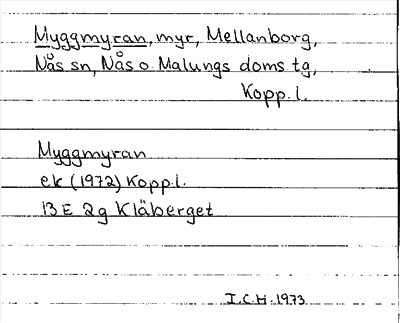 Myggmyran, myr, Mellanborg,
Nås sn, Nås o. Malungs doms tg,
Kopp. l.
Myggmyran
ek (1972) Kopp. l.
13 E 2g Kläberget
I.C.H. 1973